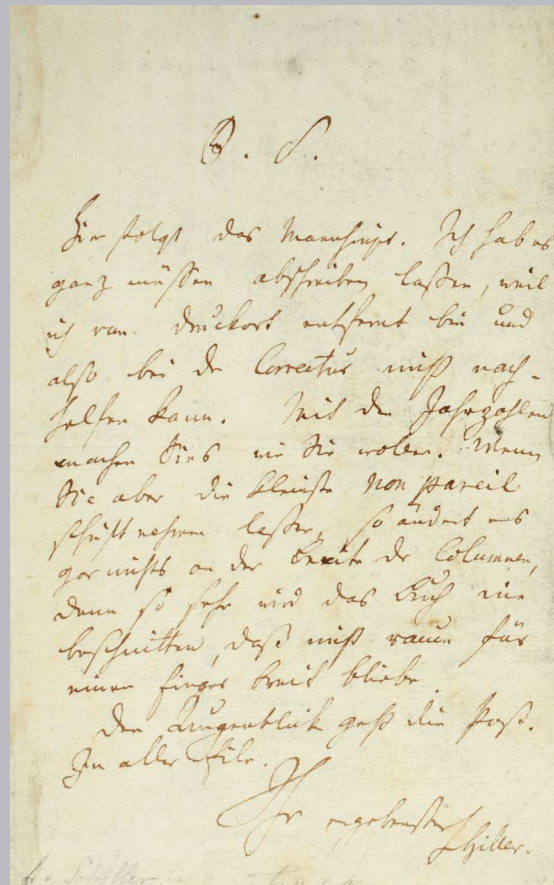 P. S.
Hier folgt das Manuscript. Ich hab es
ganz müssen abschreiben lassen, weil
ich vom Druckort entfernt bin und
also bei der Correctur nicht nach-
helfen kann. Mit den Jahrzahlen
machen Sies wie Sie wollen. Wenn
Sie aber die kleinste Nonpareil
schrift nehmen lassen, so ändert es
gar nichts an der Breite der Columnen,
denn so sehr wird das Buch nie
beschnitten, daß nicht raum für
einen finger breit bliebe.
Den Augenblick geht die Post.
In aller Eile.
Ihr ergebenster
Schiller.